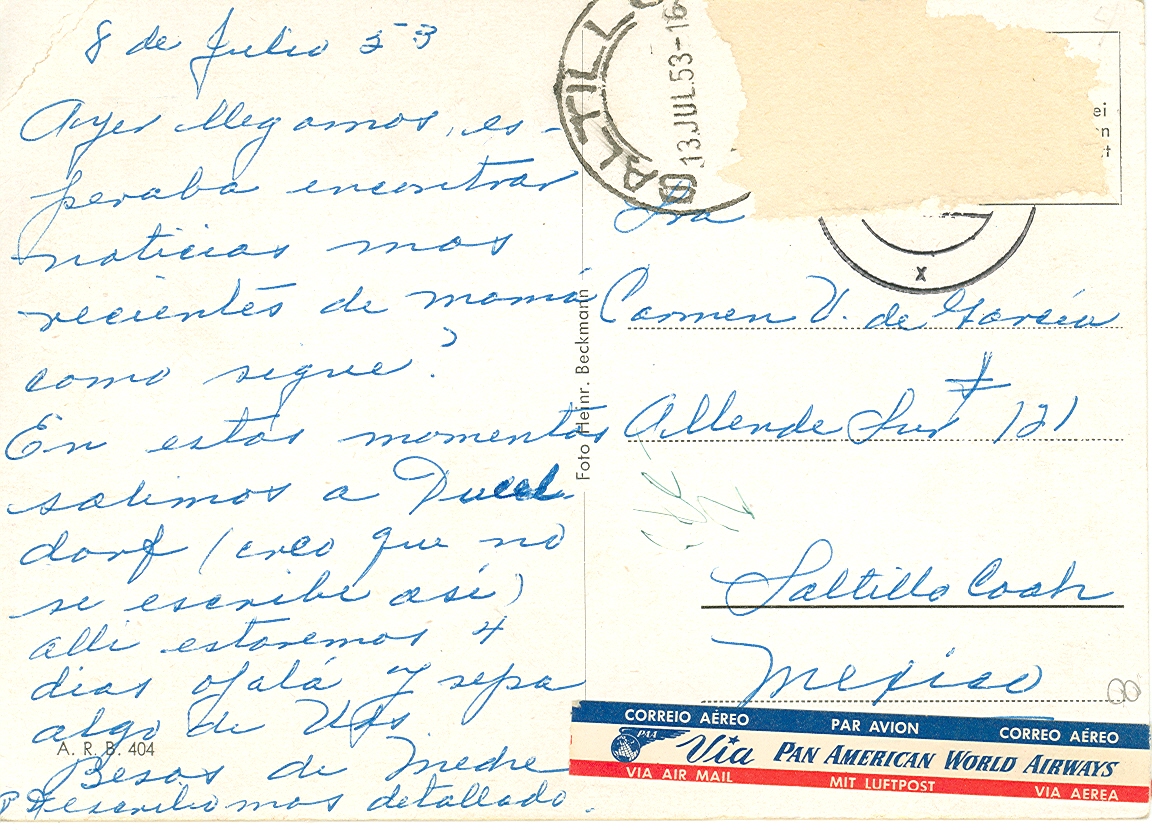 8 de Julio 53
Ayer llegamos, es-
peraba encontrar
noticias mas
recientes de mamá
como sigue?
En estos momentos
salimos a Ducel-
dorf (creo que no
se escribe asi)
alli estaremos 4
dias ojalá y sepa
algo de Uds
Besos de
Describo mas detallado.
A. R. B. 404
Foto Heinr. Beckmann
SALTILLO
13 JUL 53-16
ei
Sra
Carmen V. de García
Allende Sur # 121
Saltillo Coah
Mexico
CORREIO AÉREO PAR AVION CORREO AÉREO
PAA Via PAN AMERICAN WORLD AIRWAYS
VIA AIR MAIL MIT LUFTPOST VIA AEREA